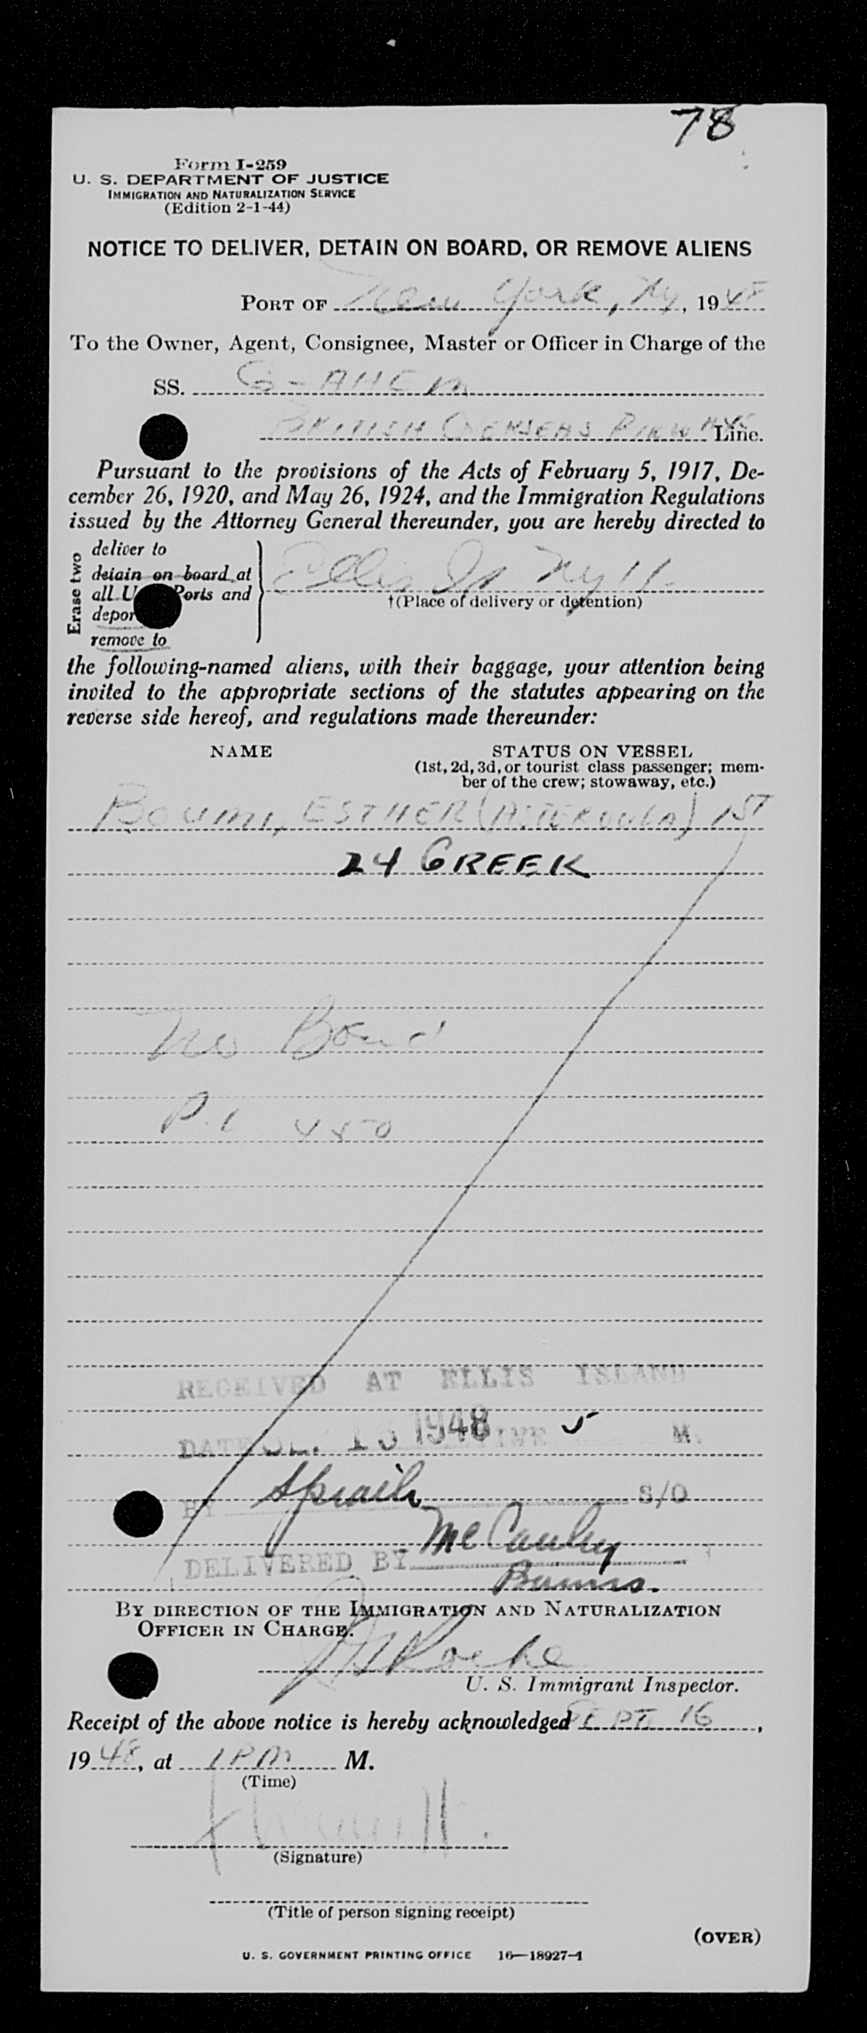 78
Form I-259
U. S. DEPARTMENT OF JUSTICE
IMMIGRATION AND NATURALIZATION SERVICE
(Edition 2-1-44)
NOTICE TO DELIVER, DETAIN ON BOARD, OR REMOVE ALIENS
PORT OF New York, Ny, 1948
To the Owner, Agent, Consignee, Master or Officer in Charge of the
SS. G-AHEM
BRITISH OVERSEAS AIRWAYS Line.
Pursuant to the provisions of the Acts of February 5, 1917, De-
cember 26, 1920, and May 26, 1924, and the Immigration Regulations
issued by the Attorney General thereunder, you are hereby directed to
Erase two
deliver to
detain on board at
all U Ports and
depor
remove to
Ellis Is NyH
†(Place of delivery or detention)
the following-named aliens, with their baggage, your attention being
invited to the appropriate sections of the statutes appearing on the
reverse side hereof, and regulations made thereunder:
NAME STATUS ON VESSEL
(1st, 2d, 3d, or tourist class passenger; mem-
ber of the crew; stowaway, etc.)
BOUMI, ESTHER (ASTEROULA) 1ST
24 GREEK
No Bond
P.L 450
RECEIVED AT ELLIS ISLAND
DATE 1948 TIME 5 M.
BY S/O
DELIVERED BY McCauley
By direction of the Immigration and Naturalization
Officer in Charge.
Roche
U. S. Immigrant Inspector.
Receipt of the above notice is hereby acknowledged SEPT. 16,
1948, at 1 PM M.
(Time)
(Signature)
(Title of person signing receipt)
(OVER)
U. S. GOVERNMENT PRINTING OFFICE 16—18927-1